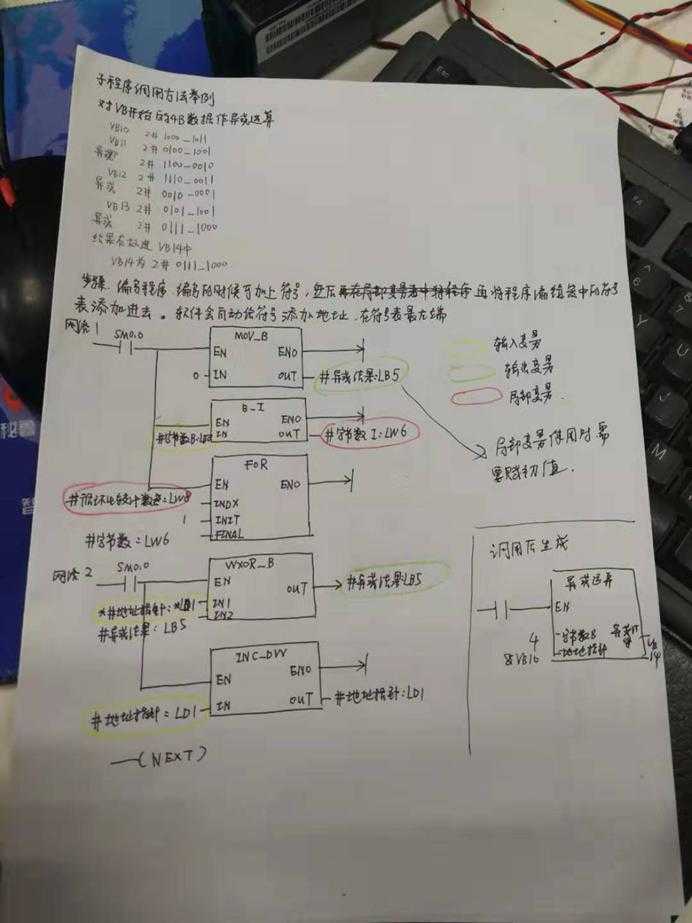 子程序调用方法举例
对VB开始的4B数据作异或运算
VB10 2# 1000_1011
VB11 2# 0100_1001
异或 2# 1100_0010
VB12 2# 1110_0011
异或 2# 0010_0001
VB13 2# 0101_1001
异或 2# 0111_1000
结果存放进 VB14中
VB14为 2# 0111_1000
步骤: 编写程序 编写的时候可加上符号, 再将程序编辑器中的符号
表添加进去。软件会自动给符号添加地址 在符号表最左端
网络1
SM0.0
MOV_B
EN ENO
0 IN OUT #异或结果:LB5
B_I
EN ENO
#字节数B: IN OUT #字节数I:LW6
FOR
EN ENO
#循环比较计数器:LW8 INDX
1 INIT
#字节数:LW6 FINAL
输入变量
输出变量
局部变量
局部变量使用时需
要赋初值.
网络2
SM0.0
WXOR_B
EN OUT #异或结果:LB5
*#地址指针:*LD1 IN1
#异或结果:LB5 IN2
INC_DW
EN ENO
#地址指针:LD1 IN OUT #地址指针:LD1
(NEXT)
调用后生成
异或运算
EN
4 字节数B
&VB10 地址指针
VB14